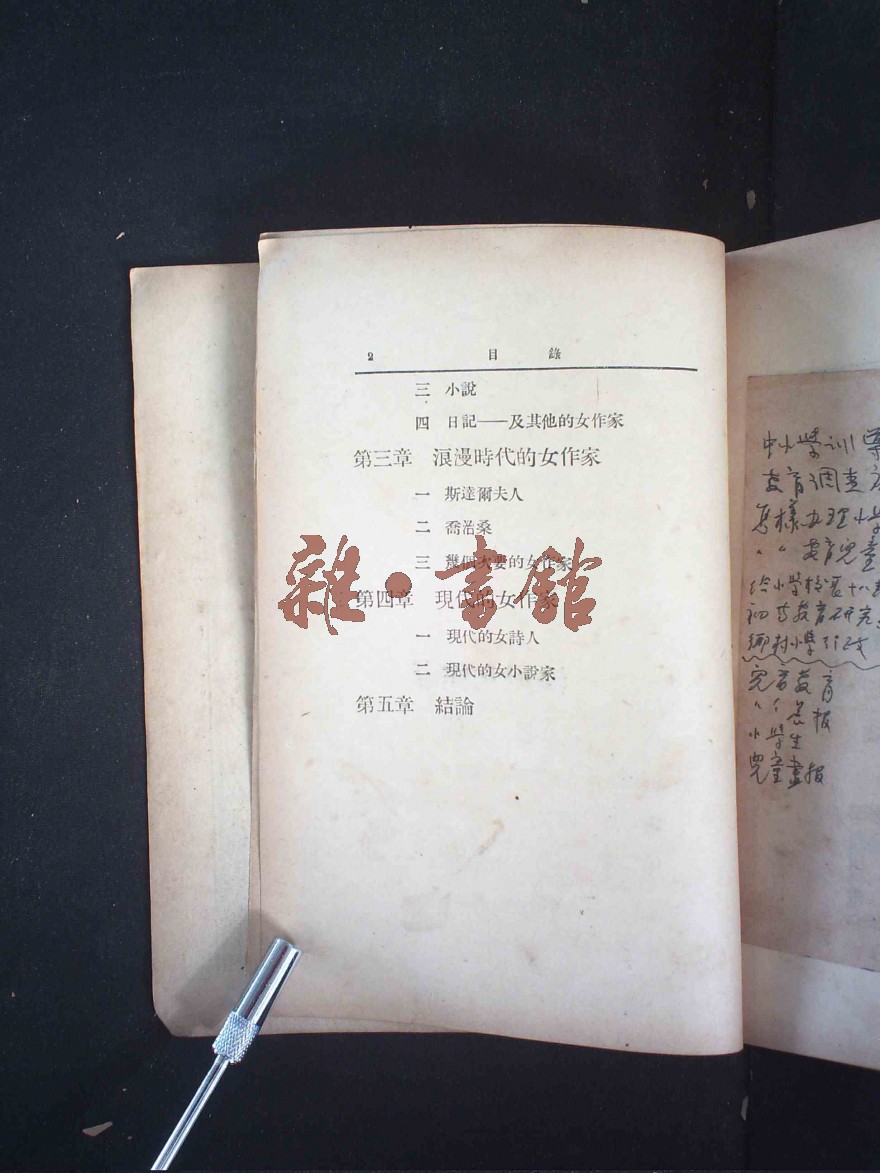 2 目 錄
三 小說
四 日記——及其他的女作家
第三章 浪漫時代的女作家
一 斯達爾夫人
二 喬治桑
三 幾個次要的女作家
第四章 現代的女作家
一 現代的女詩人
二 現代的女小說家
第五章 結論
雜·書館
中小學訓導
教育調查
怎樣办理小學
〃 〃 教育兒童
给小學校長十八
初等教育研究
鄉村小學行政
兒童教育
小學生
兒童畫报